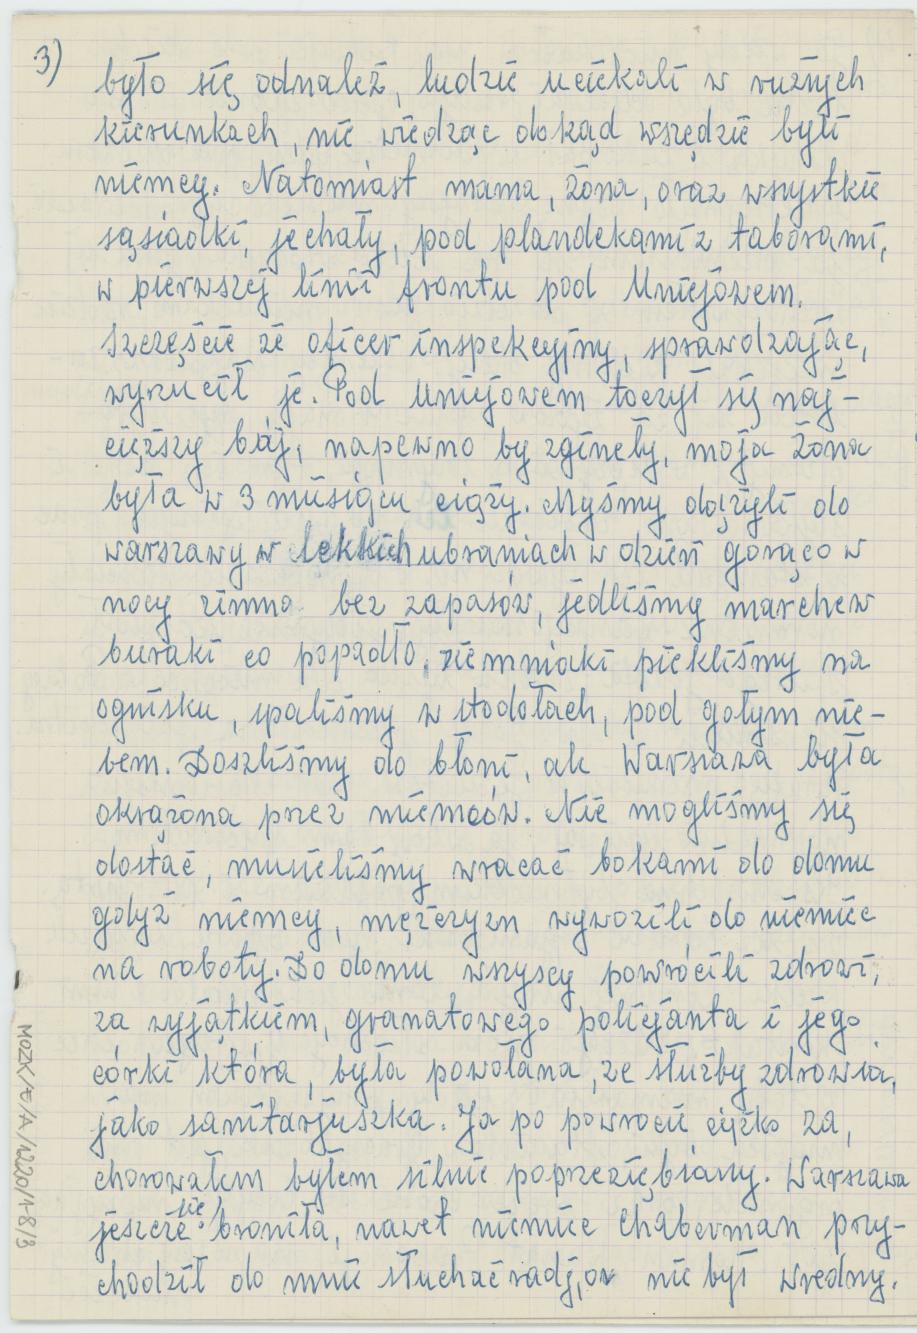 3)
było się odnaleź, ludzie uciekali w rużnych
kierunkach, nie wiedząc dokąd wszędzie byli
niemcy. Natomiast mama, żona, oraz wszystkie
sąsiadki, jechały, pod plandekami z taborami,
w pierwszej linii frontu pod Uniejowem.
Szczęście że oficer inspekcyjny, sprawdzając,
wyrzucił je. Pod Uniejowem toczył się naj-
cięższy bój, napewno by zgineły, moja żona
była w 3 miesiącu ciąży. Myśmy dążyli do
warszawy w lekkich ubraniach w dzień gorąco w
nocy zimno bez zapasów, jedliśmy marchew
buraki co popadło, ziemniaki piekliśmy na
ognisku, spaliśmy w stodołach, pod gołym nie-
bem. Doszliśmy do błoni, ale Warszawa była
okrążona przez niemców. Nie mogliśmy się
dostać, musieliśmy wracać bokami do domu
gdyż niemcy, mężczyzn wywozili do niemiec
na roboty. Do domu wszyscy powrócili zdrowi,
za wyjątkiem, granatowego policjanta i jego
córki która, była powołana, ze służby zdrowia,
jako sanitarjuszka. Ja po powrocie ciężko za,
chorowałem byłem silnie poprzeziębiany. Warszawa
jeszcze się broniła, nawet niemiec Chaberman przy-
chodził do mnie słuchać radj,ow nie był wredny.
MOZK/E/A/1220/1-8/3